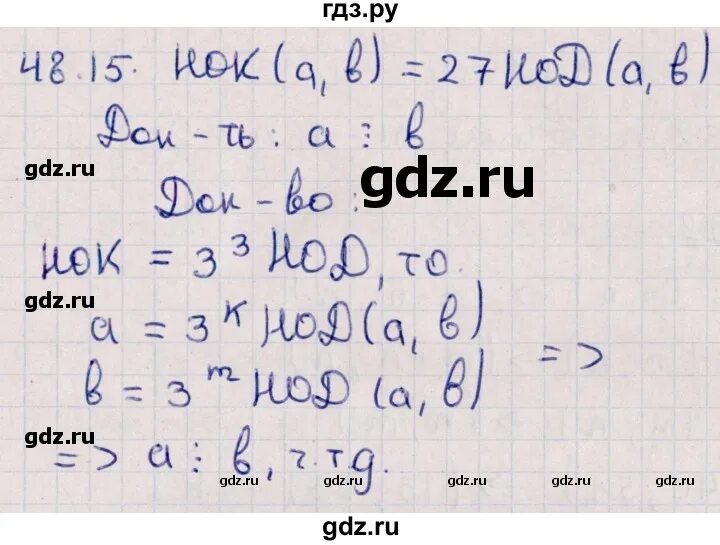 гдз.ру
48.15. НОК(а, в) = 27 НОД(а, в)
Док-ть: а ⋮ в
gdz.ru
gdz.ru
Док-во:
НОК = 3³ НОД, то.
gdz.ru
а = 3ᴷ НОД(а, в)
=>
в = 3ᵐ НОД (а, в)
gdz.ru
=> а ⋮ в, ч.тд.
gdz.ru gdz.ru gdz.ru gdz.ru
gdz.ru